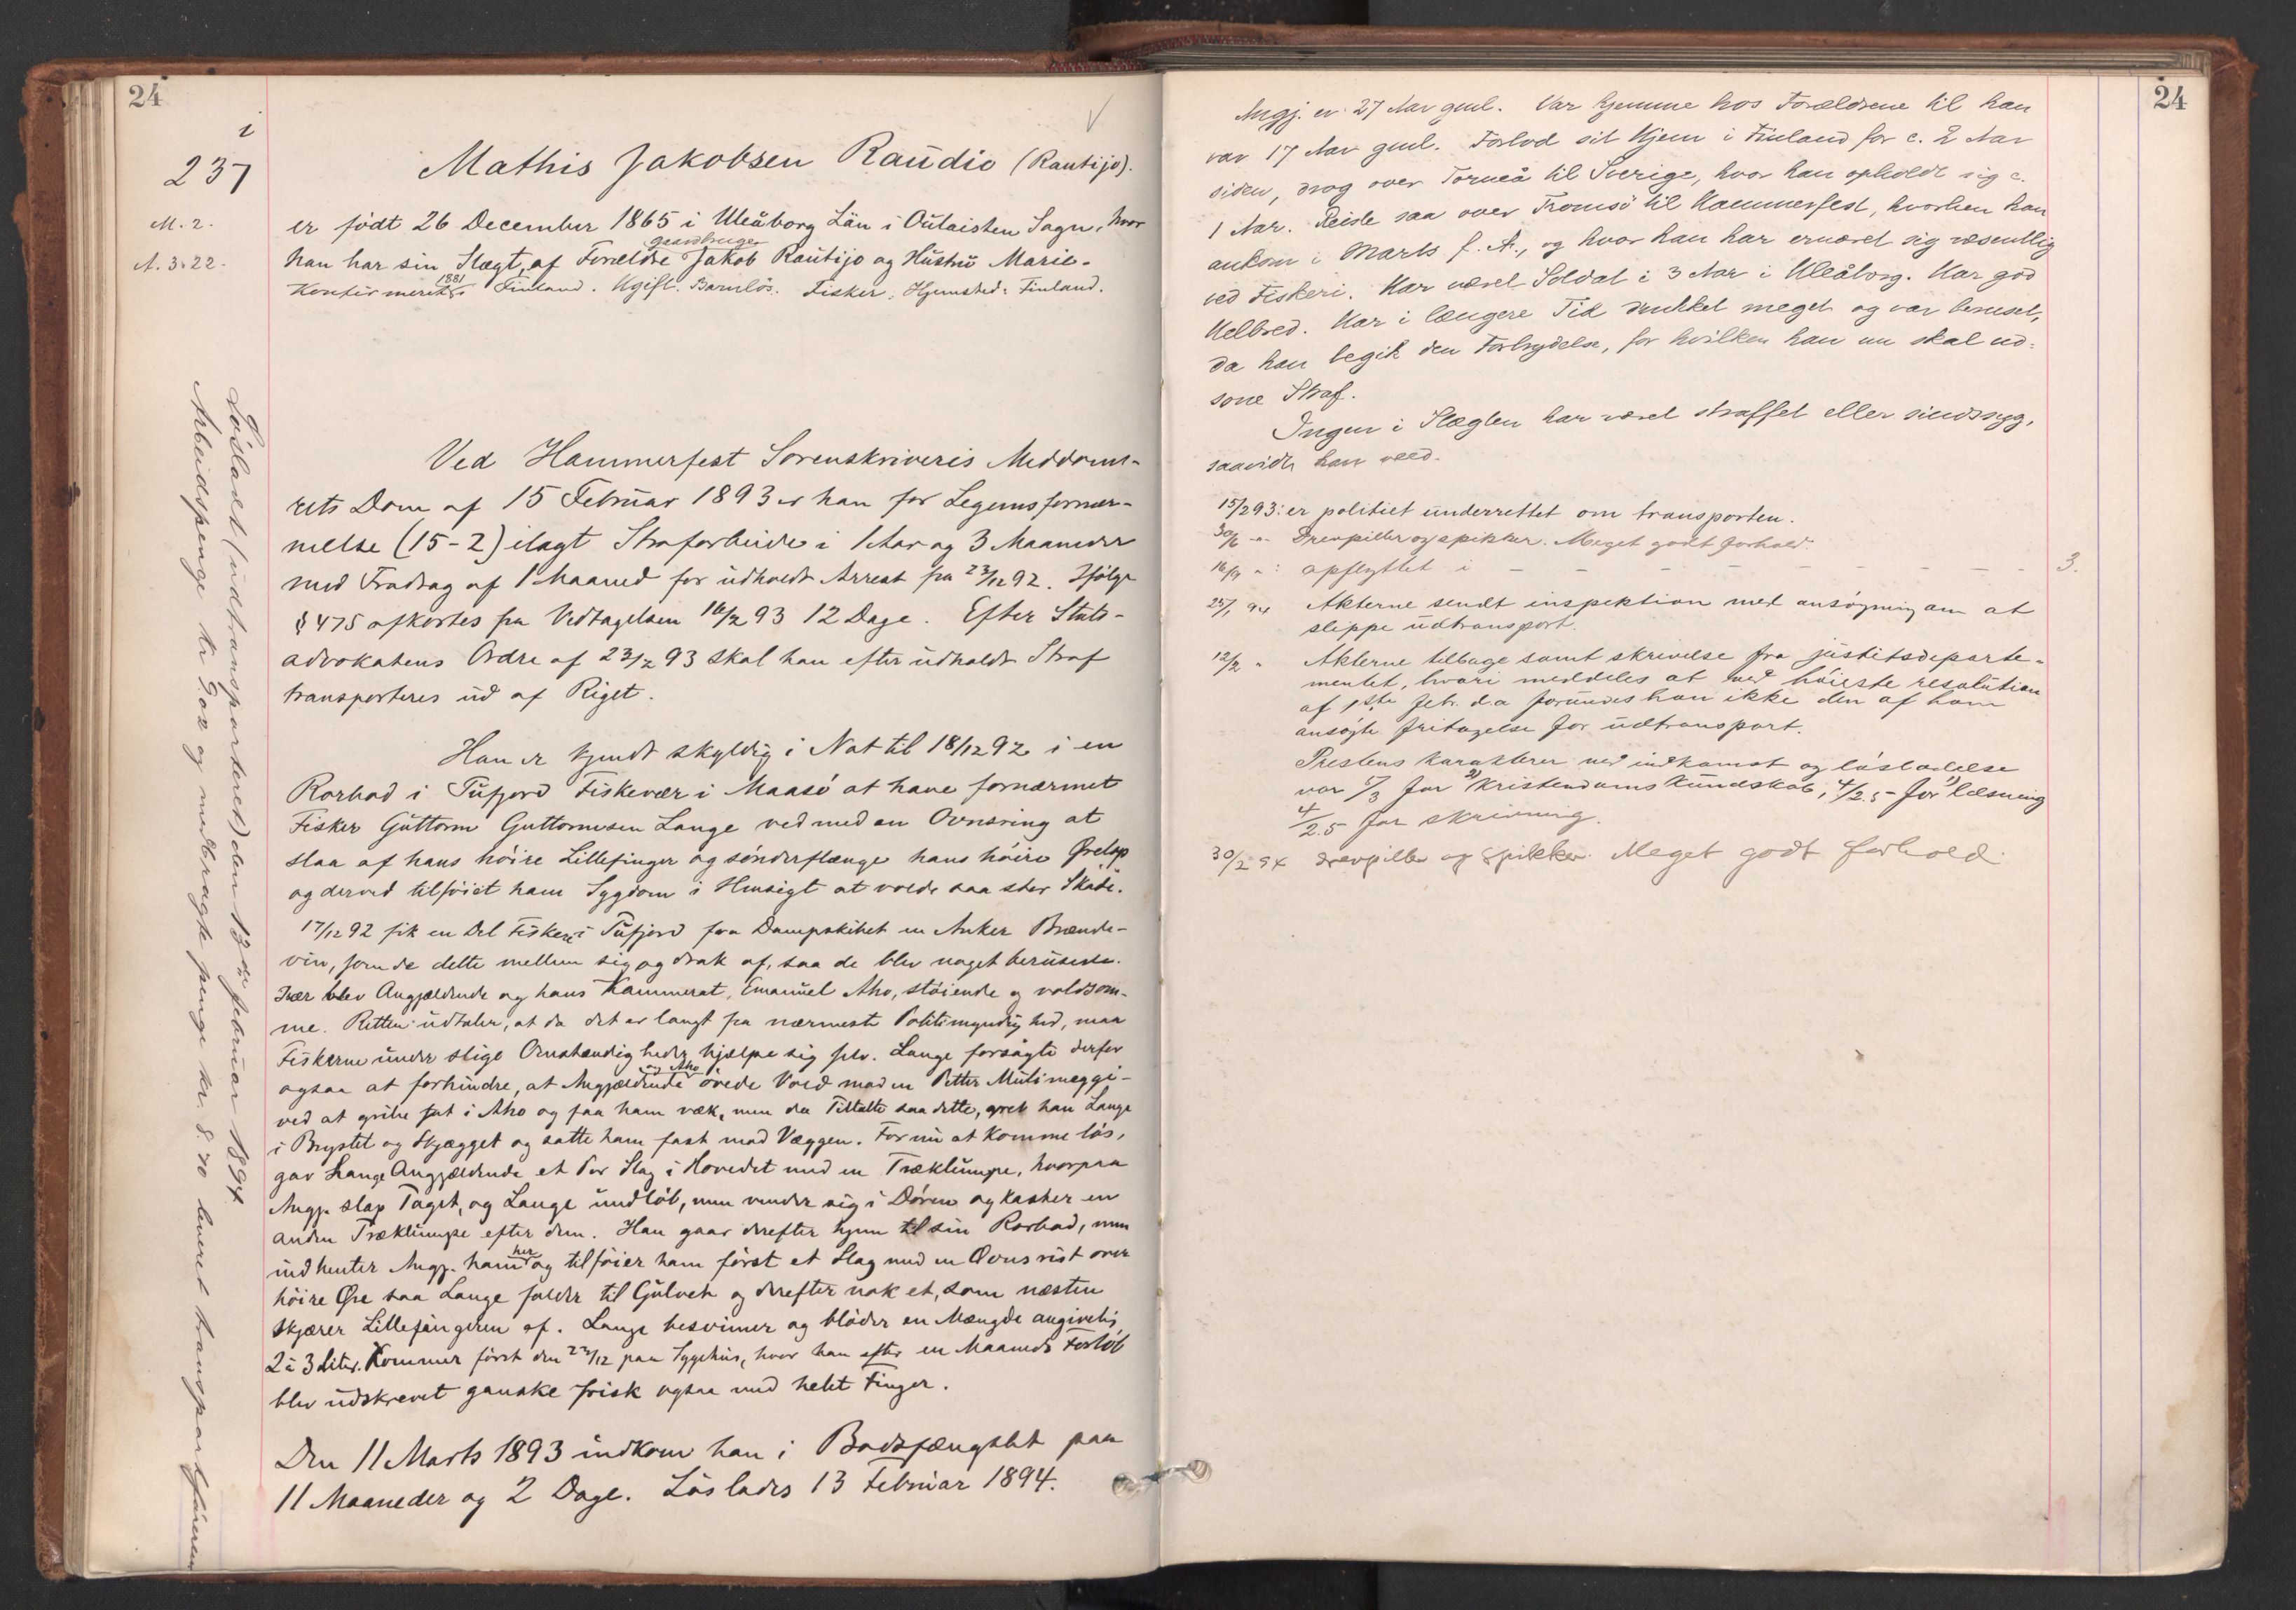 24
i
237
M. 2.
A. 3.22.
Mathis Jakobsen Raudio (Rautijo).
er født 26 December 1865 i Uleåborg Län i Oulaisten Sogn, hvor
gaardbruger
han har sin Slægt, af Forældre Jakob Rautijo og Hustru Marie.
1881
Konfirmeret i Finland. Ugift. Barnløs. Fisker. Hjemsted: Finland.
Ved Hammerfest Sorenskriveris Meddoms-
rets Dom af 15 Februar 1893 er han for Legemsfornær-
melse (15-2) ilagt Strafarbeide i 1 Aar og 3 Maaneder
med Fradrag af 1 Maaned for udholdt Arrest fra 23/12 92. Ifølge
§ 475 afkortes fra Vedtagelsen 16/2 93 12 Dage. Efter Stats-
advokatens Ordre af 23/2 93 skal han efter udholdt Straf
transporteres ud af Riget.
Han er kjendt skyldig i Nat til 18/12 92 i en
Rorbod i Tufjord Fiskevær i Maasö at have fornærmet
Fisker Guttorm Guttormsen Lange ved med en Ovnsring at
slaa af hans höire Lillefinger og sönderflænge hans höire Örelap
og derved tilföiet ham Sygdom i Hensigt at volde saa stor Skade.
17/12 92 fik en Del Fiskere i Tufjord fra Dampskibet en Anker Brænde-
vin, som de delte mellem sig og drak af, saa de blev noget berusede.
Især blev Angjældende og hans Kammerat, Emanuel Aho, stöiende og voldsom-
me. Retten udtaler, at da det er langt fra nærmeste Politimyndighed, maa
Fiskerne under slige Omstændigheder hjælpe sig selv. Lange forsögte derfor
og Aho
ogsaa at forhindre, at Angjældende övede Vold mod en Petter Mutimæggi-
ved at gribe fat i Aho og faa ham væk, men da Tiltalte saa dette, greb han Lange
i Brystet og Skjægget og satte ham fast mod Væggen. For nu at komme lös,
gav Lange Angjældende et Par Slag i Hovedet med en Træklumpe, hvorpaa
Angj. slap Taget, og Lange undlöb, men vender sig i Dören og kaster en
anden Træklumpe efter dem. Han gaar derefter hjem til sin Rorbod, men
her
indhenter Angj. ham og tilföier ham först et Slag med en Ovnsrist over
höire Öre saa Lange falder til Gulvet og derefter nok et, som næsten
skjærer Lillefingeren af. Lange besvimer og blöder en Mængde angivelig
2 à 3 Liter. Kommer först den 23/12 paa Sygehus, hvor han efter en Maaneds Forlöb
blev udskrevet ganske frisk ogsaa med helet Finger.
Den 11 Marts 1893 indkom han i Bodsfængslet paa
11 Maaneder og 2 Dage. Löslades 13 Februar 1894.
Lösladt (udtransporteret) den 13de februar 1894
Arbeidspenge kr 9.02 og medbragte penge kr. 8.70 leveret transportföreren
24
Angj. er 27 Aar gml. Var hjemme hos Forældrene til han
var 17 Aar gml. Forlod sit Hjem i Finland for c. 2 Aar
siden, drog over Torneå til Sverige, hvor han opholdt sig c.
1 Aar. Reiste saa over Tromsö til Hammerfest, hvorhen han
ankom i Marts f. A., og hvor han har ernæret sig væsentlig
ved Fiskeri. Har været Soldat i 3 Aar i Uleåborg. Har god
Helbred. Har i længere Tid drukket meget og var beruset,
da han begik den Forbrydelse, for hvilken han nu skal ud-
sone Straf.
Ingen i Slægten har været straffet eller sindssyg,
saavidt han veed.
15/2 93: er politiet underrettet om transporten.
30/6 -"- Drevpiller og spikker. Meget godt forhold.
16/9 -": opflyttet i - - - - - - - - 3.
25/1 94 Akterne sendt inspektion med ansögning om at
slippe udtransport.
12/2 " Akterne tilbage samt skrivelse fra justitsdeparte-
mentet, hvori meddeles at ved höieste resolution
af 1ste febr. d.a. forundes han ikke den af ham
ansögte fritagelse for udtransport.
Prestens karakterer ved indkomst og lösladelse
var 5/3 for 2) kristendoms kundskab, 4/2.5- for 1) læsning
4/2.5 for skrivning.
30/2 94 drevpiller og spikker. Meget godt forhold.